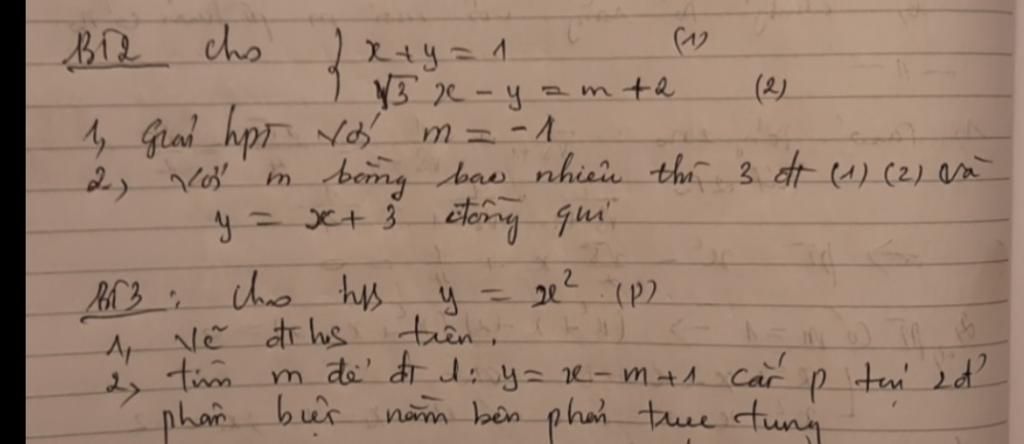 BT2 cho { x + y = 1 (1)
√3 x - y = m + 2 (2)
1, Giải hpt với m = -1
2, với m bằng bao nhiêu thì 3 đt (1) (2) và
y = x + 3 đồng qui
BT3 : cho hs y = x² (P)
1, Vẽ đths trên.
2, tìm m để đt d: y = x - m + 1 cắt P tại 2đ'
phân biệt nằm bên phải trục tung